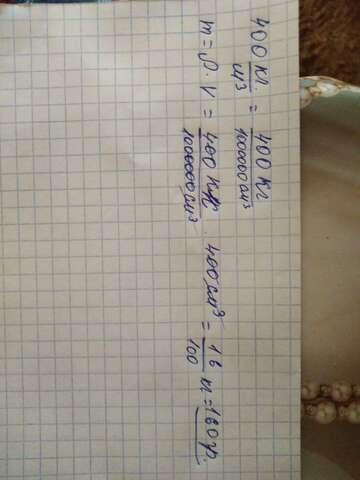 400 кг/м³ = 400 кг/1000000 см³
m = ρ · V = 400 кг/1000000 см³ · 400 см³ = 16/100 m = 160 гр.